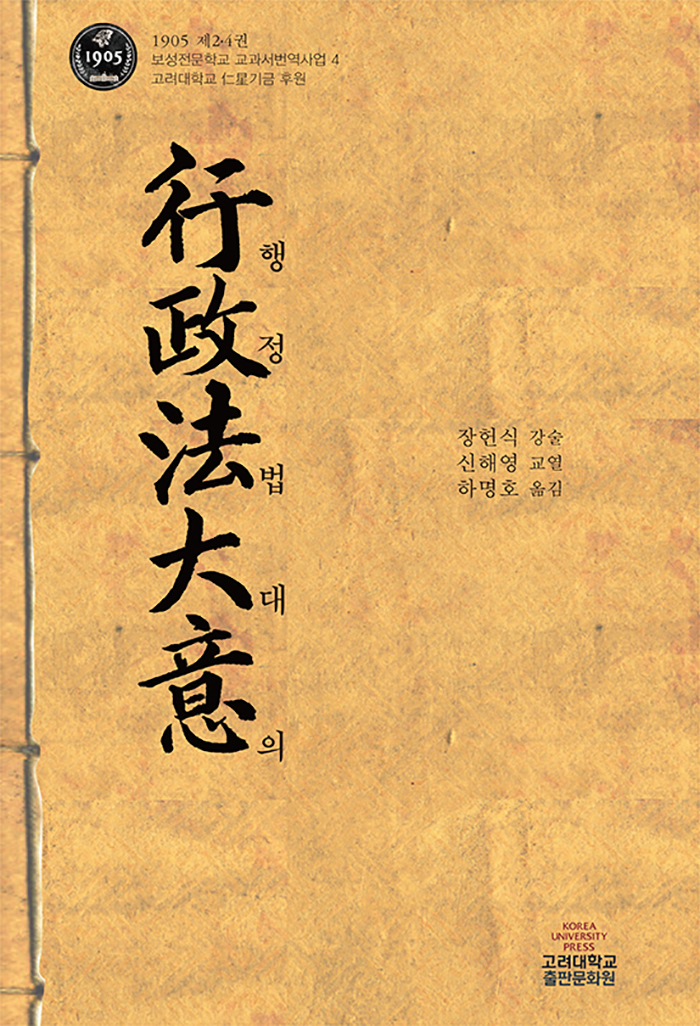 1905
1905 제2·4권
보성전문학교 교과서번역사업 4
고려대학교 仁星기금 후원
行政法大意
행정법대의
장헌식 강술
신해영 교열
하명호 옮김
KOREA
UNIVERSITY
PRESS
고려대학교
출판문화원